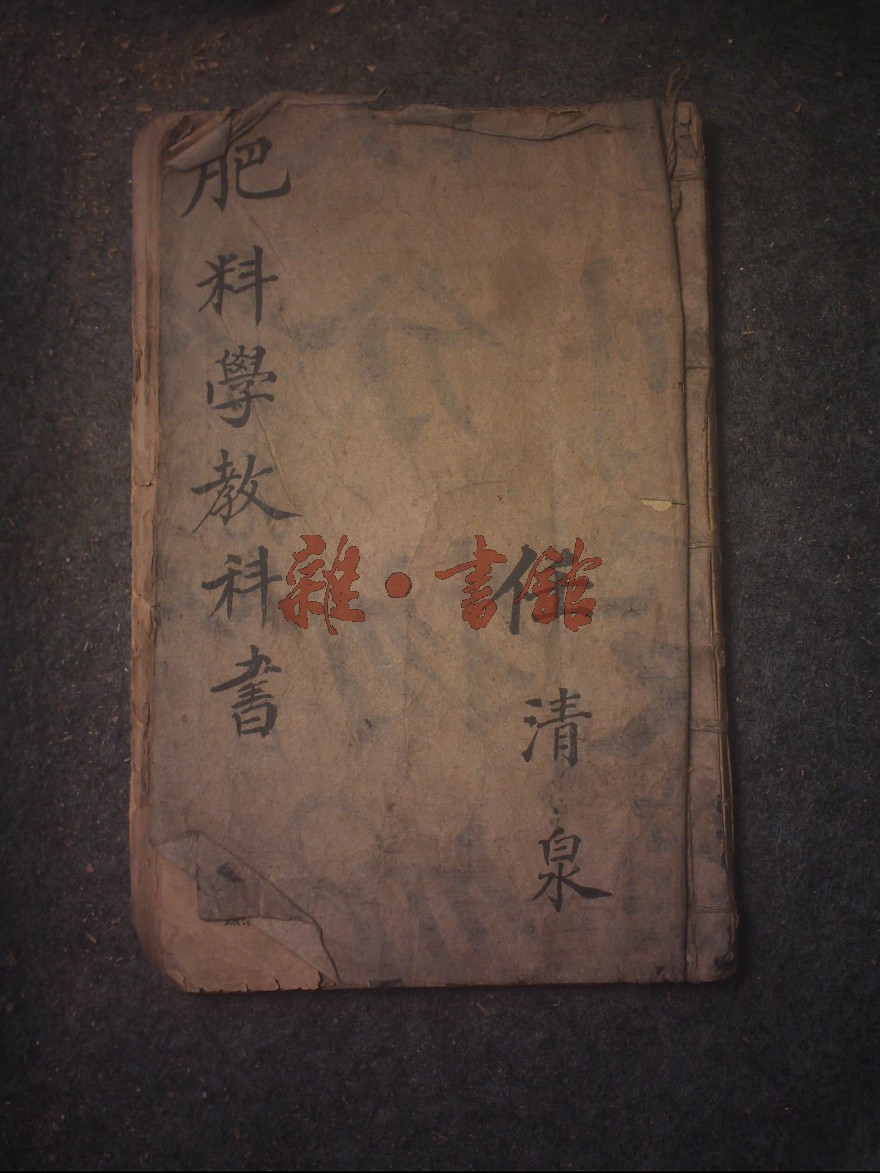 清泉
肥料學教科書
雜·書館